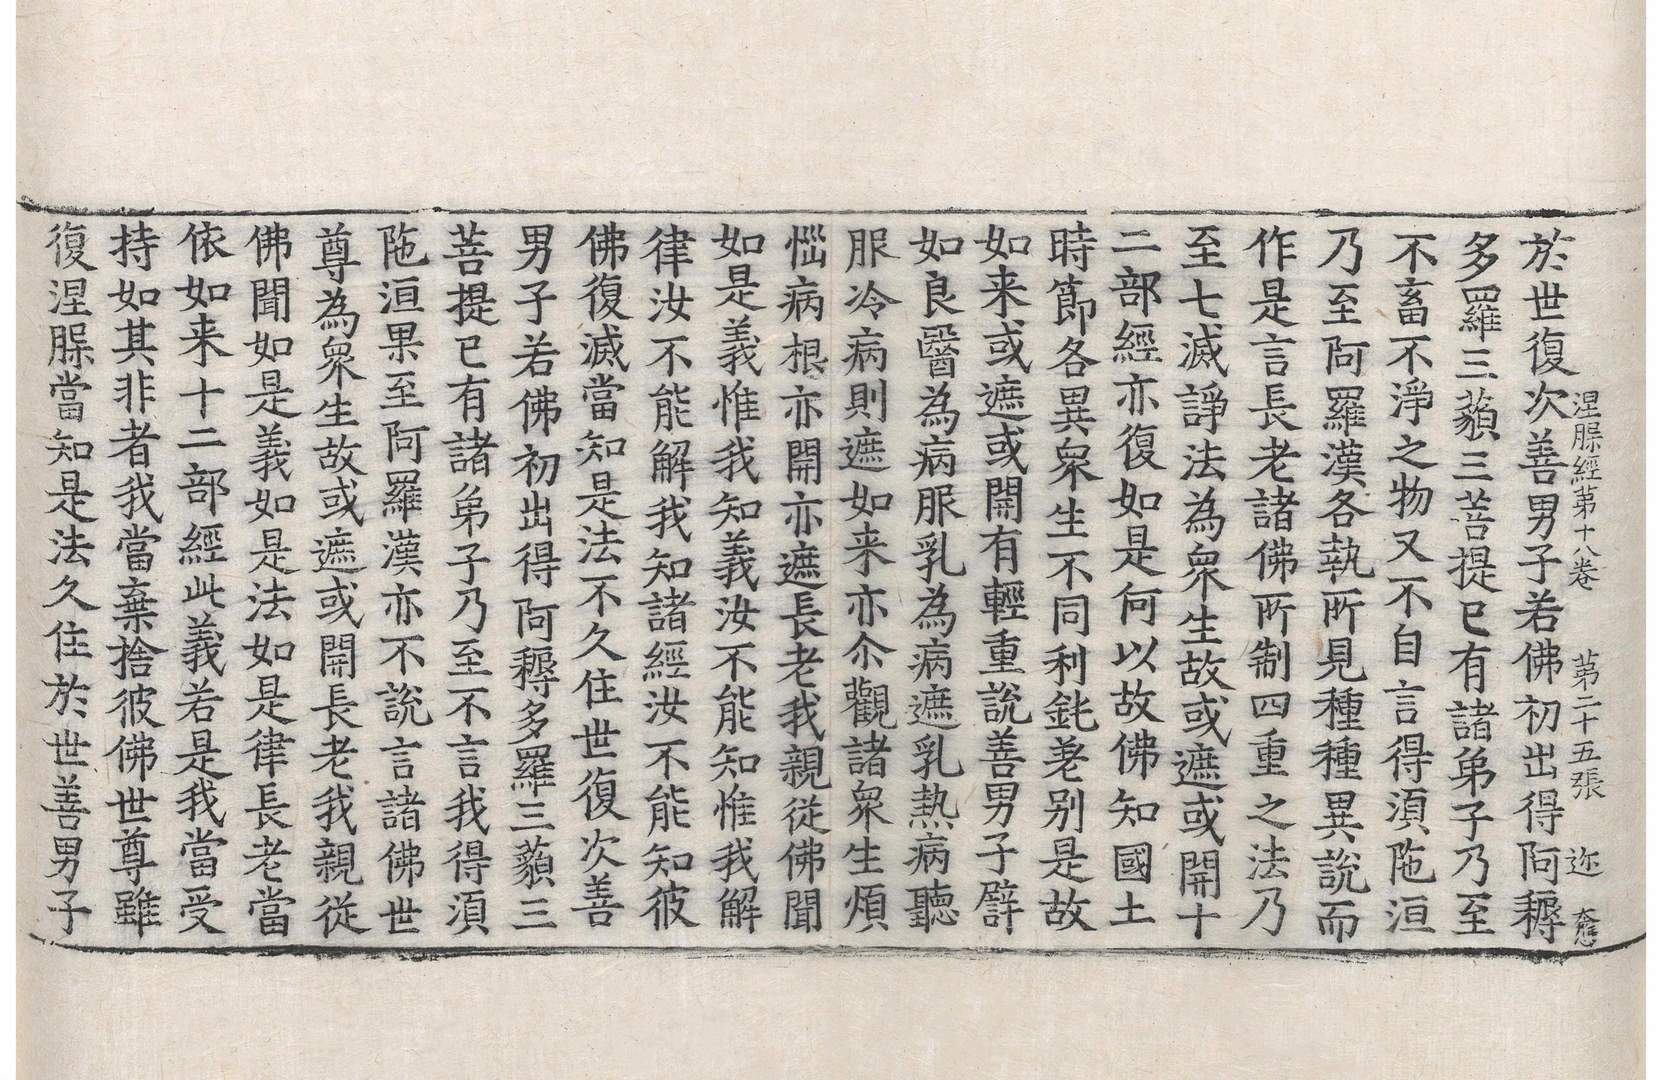 涅脲經第十八卷　第二十五張　迩
於世復次善男子若佛初出得阿耨
多羅三藐三菩提已有諸弟子乃至
不畜不淨之物又不自言得湏陁洹
乃至阿羅漢各執所見種種異說而
作是言長老諸佛所制四重之法乃
至七滅諍法為衆生故或遮或開十
二部經亦復如是何以故佛知國土
時節各異衆生不同利鈍差别是故
如来或遮或開有輕重說善男子譬
如良醫為病服乳為病遮乳熱病聽
服冷病則遮如来亦尒觀諸衆生煩
惱病根亦開亦遮長老我親從佛聞
如是義惟我知義汝不能知惟我解
律汝不能解我知諸經汝不能知彼
佛復滅當知是法不久住世復次善
男子若佛初出得阿耨多羅三藐三
菩提已有諸弟子乃至不言我得湏
陁洹果至阿羅漢亦不說言諸佛世
尊為衆生故或遮或開長老我親從
佛聞如是義如是法如是律長老當
依如来十二部經此義若是我當受
持如其非者我當棄捨彼佛世尊雖
復涅脲當知是法久住於世善男子